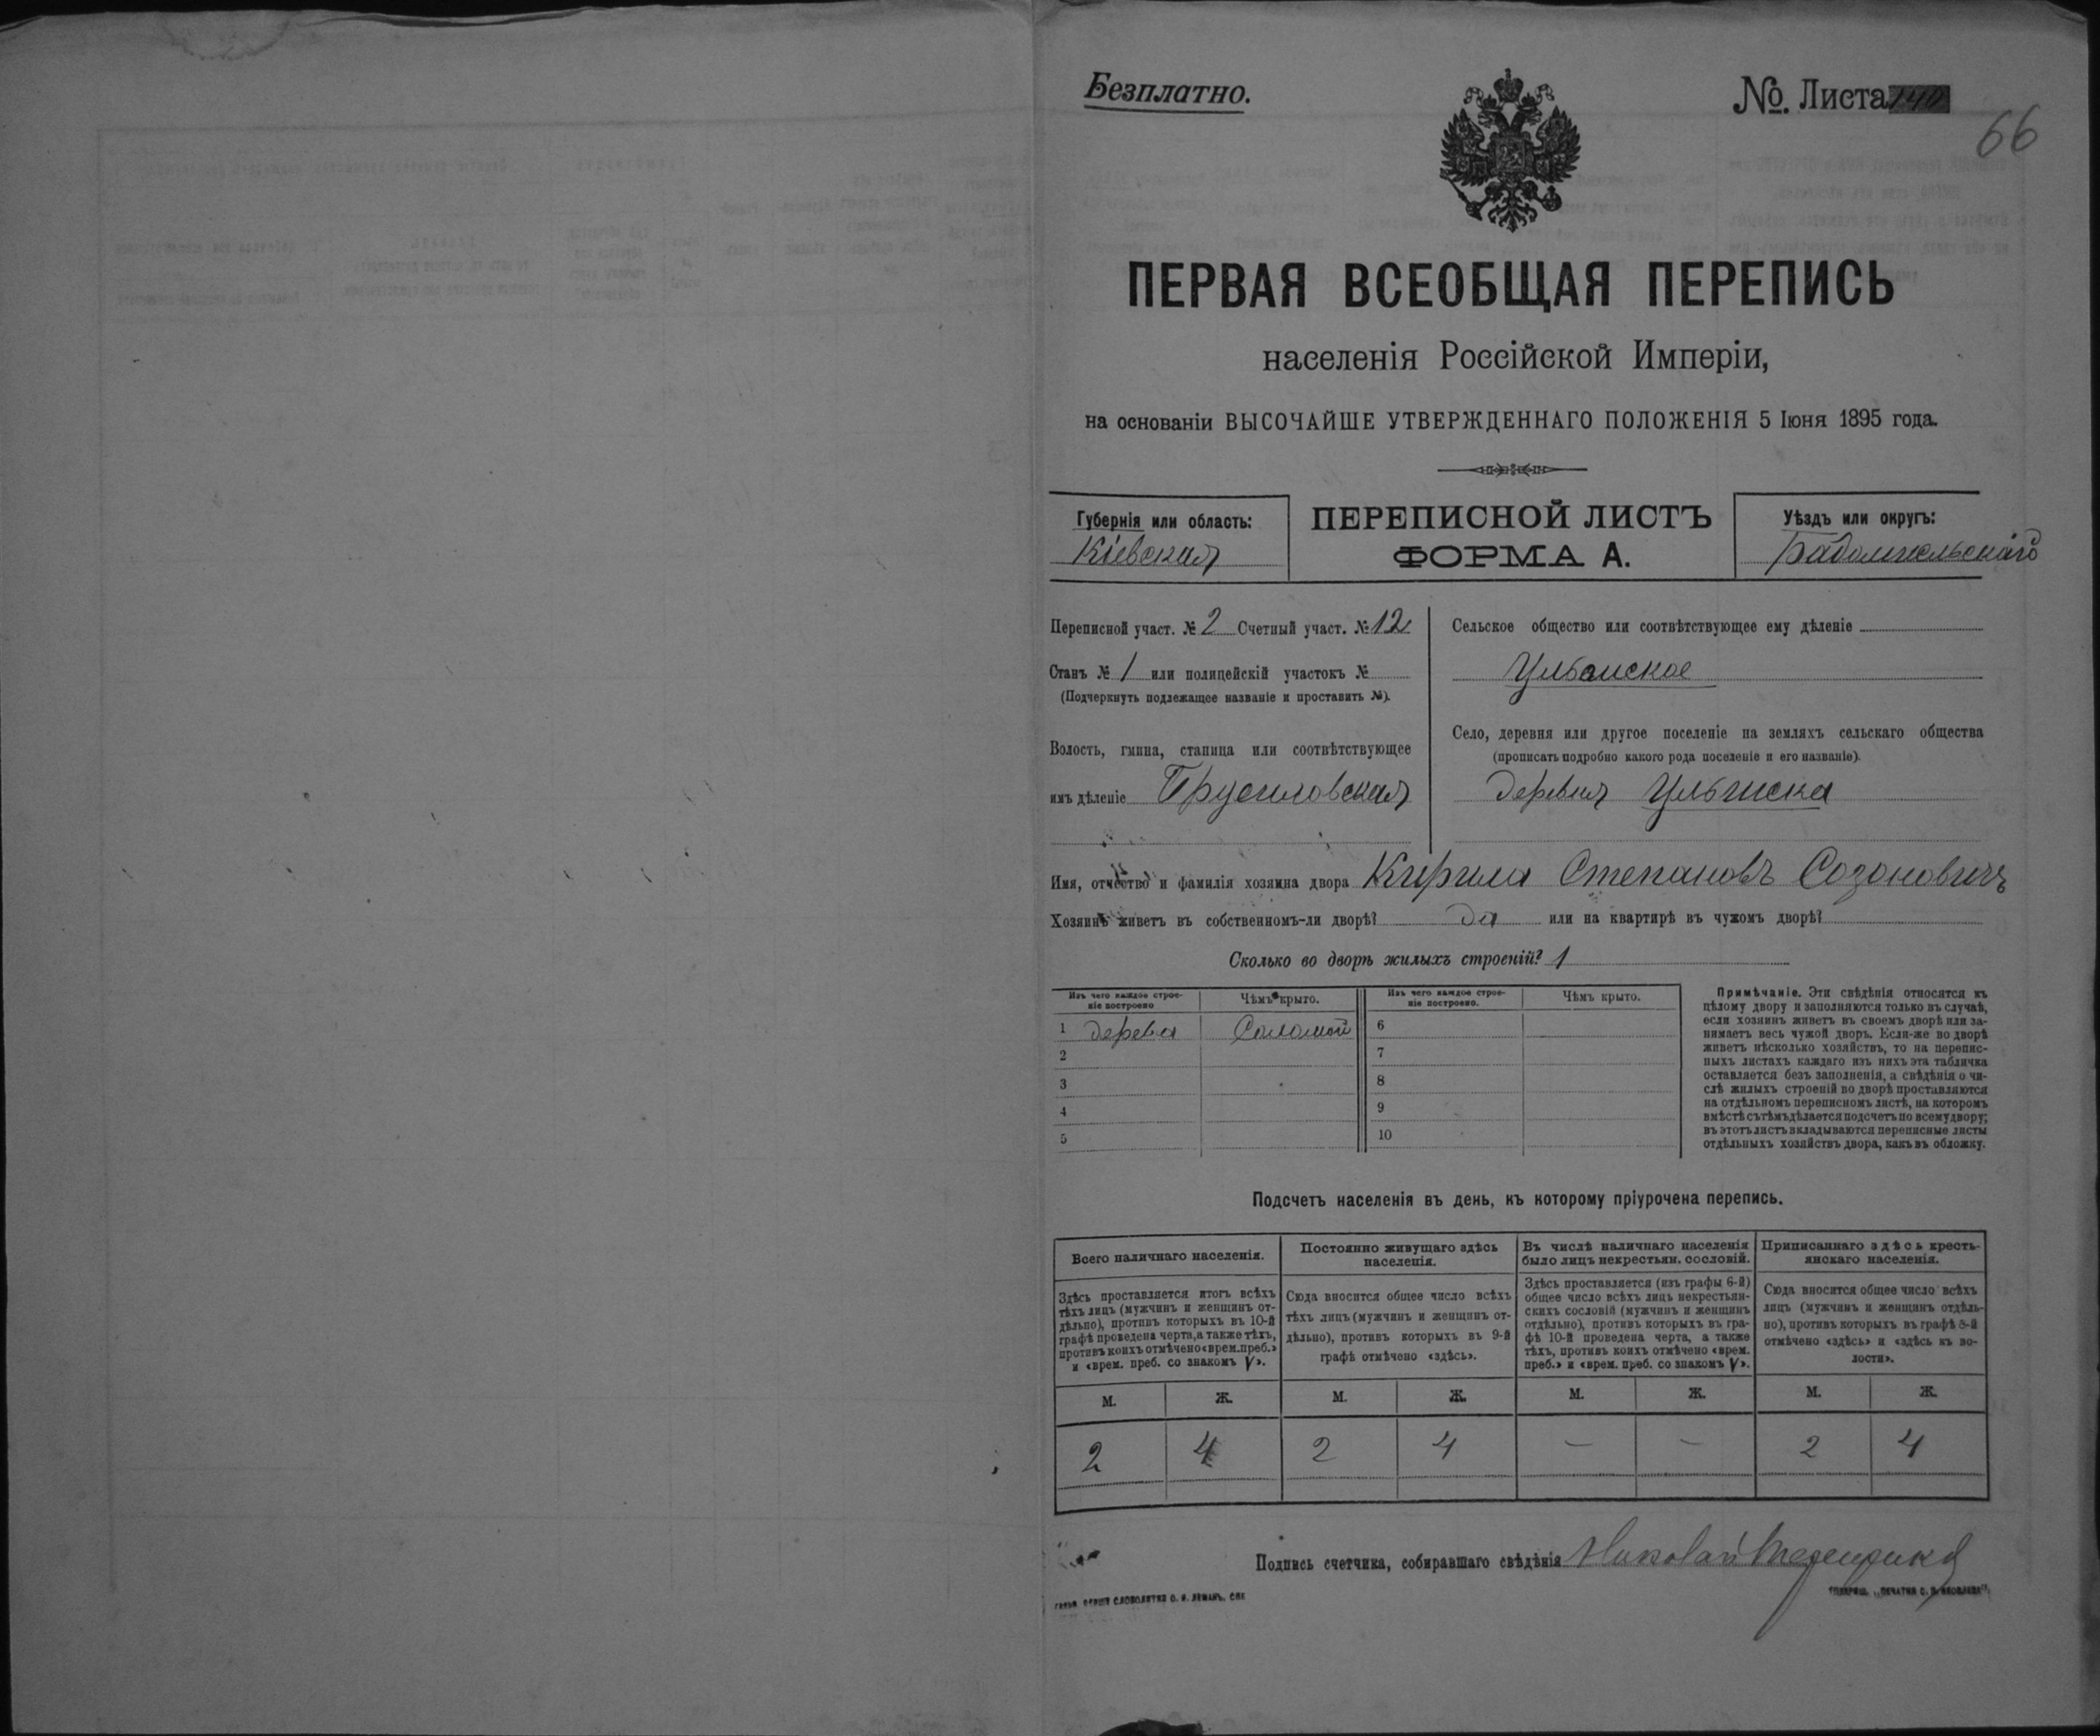 Безплатно.
№. Листа 140
66
ПЕРВАЯ ВСЕОБЩАЯ ПЕРЕПИСЬ
населенія Россійской Имперіи,
на основаніи ВЫСОЧАЙШЕ УТВЕРЖДЕННАГО ПОЛОЖЕНІЯ 5 Іюня 1895 года.
Губернія или область:
Кіевская
ПЕРЕПИСНОЙ ЛИСТЪ
ФОРМА А.
Уѣздъ или округъ:
Переписной участ. № 2 Счетный участ. № 12
Станъ № 1 или полицейскій участокъ №
(Подчеркнуть подлежащее названіе и проставить №).
Волость, гмина, станица или соотвѣтствующее
имъ дѣленіе Брусиловская
Сельское общество или соотвѣтствующее ему дѣленіе
Село, деревня или другое поселеніе на земляхъ сельскаго общества
(прописать подробно какого рода поселеніе и его названіе).
Деревня
Имя, отчество и фамилія хозяина двора Кирила Степановъ Созоновичъ
Хозяинъ живетъ въ собственномъ-ли дворѣ? Да или на квартирѣ въ чужомъ дворѣ?
Сколько во дворѣ жилыхъ строеній? 1
Изъ чего каждое строе-
ніе построено
Чѣмъ крыто.
Изъ чего каждое строе-
ніе построено.
Чѣмъ крыто.
1 Дерева Соломой 6
2 7
3 8
4 9
5 10
Примѣчаніе. Эти свѣдѣнія относятся къ
цѣлому двору и заполняются только въ случаѣ,
если хозяинъ живетъ въ своемъ дворѣ или за-
нимаетъ весь чужой дворъ. Если-же во дворѣ
живетъ нѣсколько хозяйствъ, то на перепис-
ныхъ листахъ каждаго изъ нихъ эта табличка
оставляется безъ заполненія, а свѣдѣнія о чи-
слѣ жилыхъ строеній во дворѣ проставляются
на отдѣльномъ переписномъ листѣ, на которомъ
вмѣстѣ съ тѣмъ дѣлается подсчетъ по всему двору;
въ этотъ листъ вкладываются переписные листы
отдѣльныхъ хозяйствъ двора, какъ въ обложку.
Подсчетъ населенія въ день, къ которому пріурочена перепись.
Всего наличнаго населенія.
Здѣсь проставляется итогъ всѣхъ
тѣхъ лицъ (мужчинъ и женщинъ от-
дѣльно), противъ которыхъ въ 10-й
графѣ проведена черта, а также тѣхъ,
противъ коихъ отмѣчено «врем. преб.»
и «врем. преб. со знакомъ V».
Постоянно живущаго здѣсь
населенія.
Сюда вносится общее число всѣхъ
тѣхъ лицъ (мужчинъ и женщинъ от-
дѣльно), противъ которыхъ въ 9-й
графѣ отмѣчено «здѣсь».
Въ числѣ наличнаго населенія
было лицъ некрестьян. сословій.
Здѣсь проставляется (изъ графы 6-й)
общее число всѣхъ лицъ некрестьян-
скихъ сословій (мужчинъ и женщинъ
отдѣльно), противъ которыхъ въ гра-
фѣ 10-й проведена черта, а также
тѣхъ, противъ коихъ отмѣчено «врем.
преб.» и «врем. преб. со знакомъ V».
Приписаннаго здѣсь кресть-
янскаго населенія.
Сюда вносится общее число всѣхъ
лицъ (мужчинъ и женщинъ отдѣль-
но), противъ которыхъ въ графѣ 8-й
отмѣчено «здѣсь» и «здѣсь къ во-
лости».
М. Ж. М. Ж. М. Ж. М. Ж.
2 4 2 4 — — 2 4
Подпись счетчика, собиравшаго свѣдѣнія Николай
СЛОВОЛИТНИ О. И. ЛЕМАНЪ. СПБ